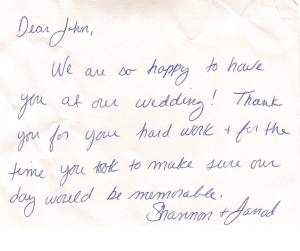 Dear John,
We are so happy to have
you at our wedding! Thank
you for your hard work + for the
time you took to make sure our
day would be memorable.
Shannon + Jarrod